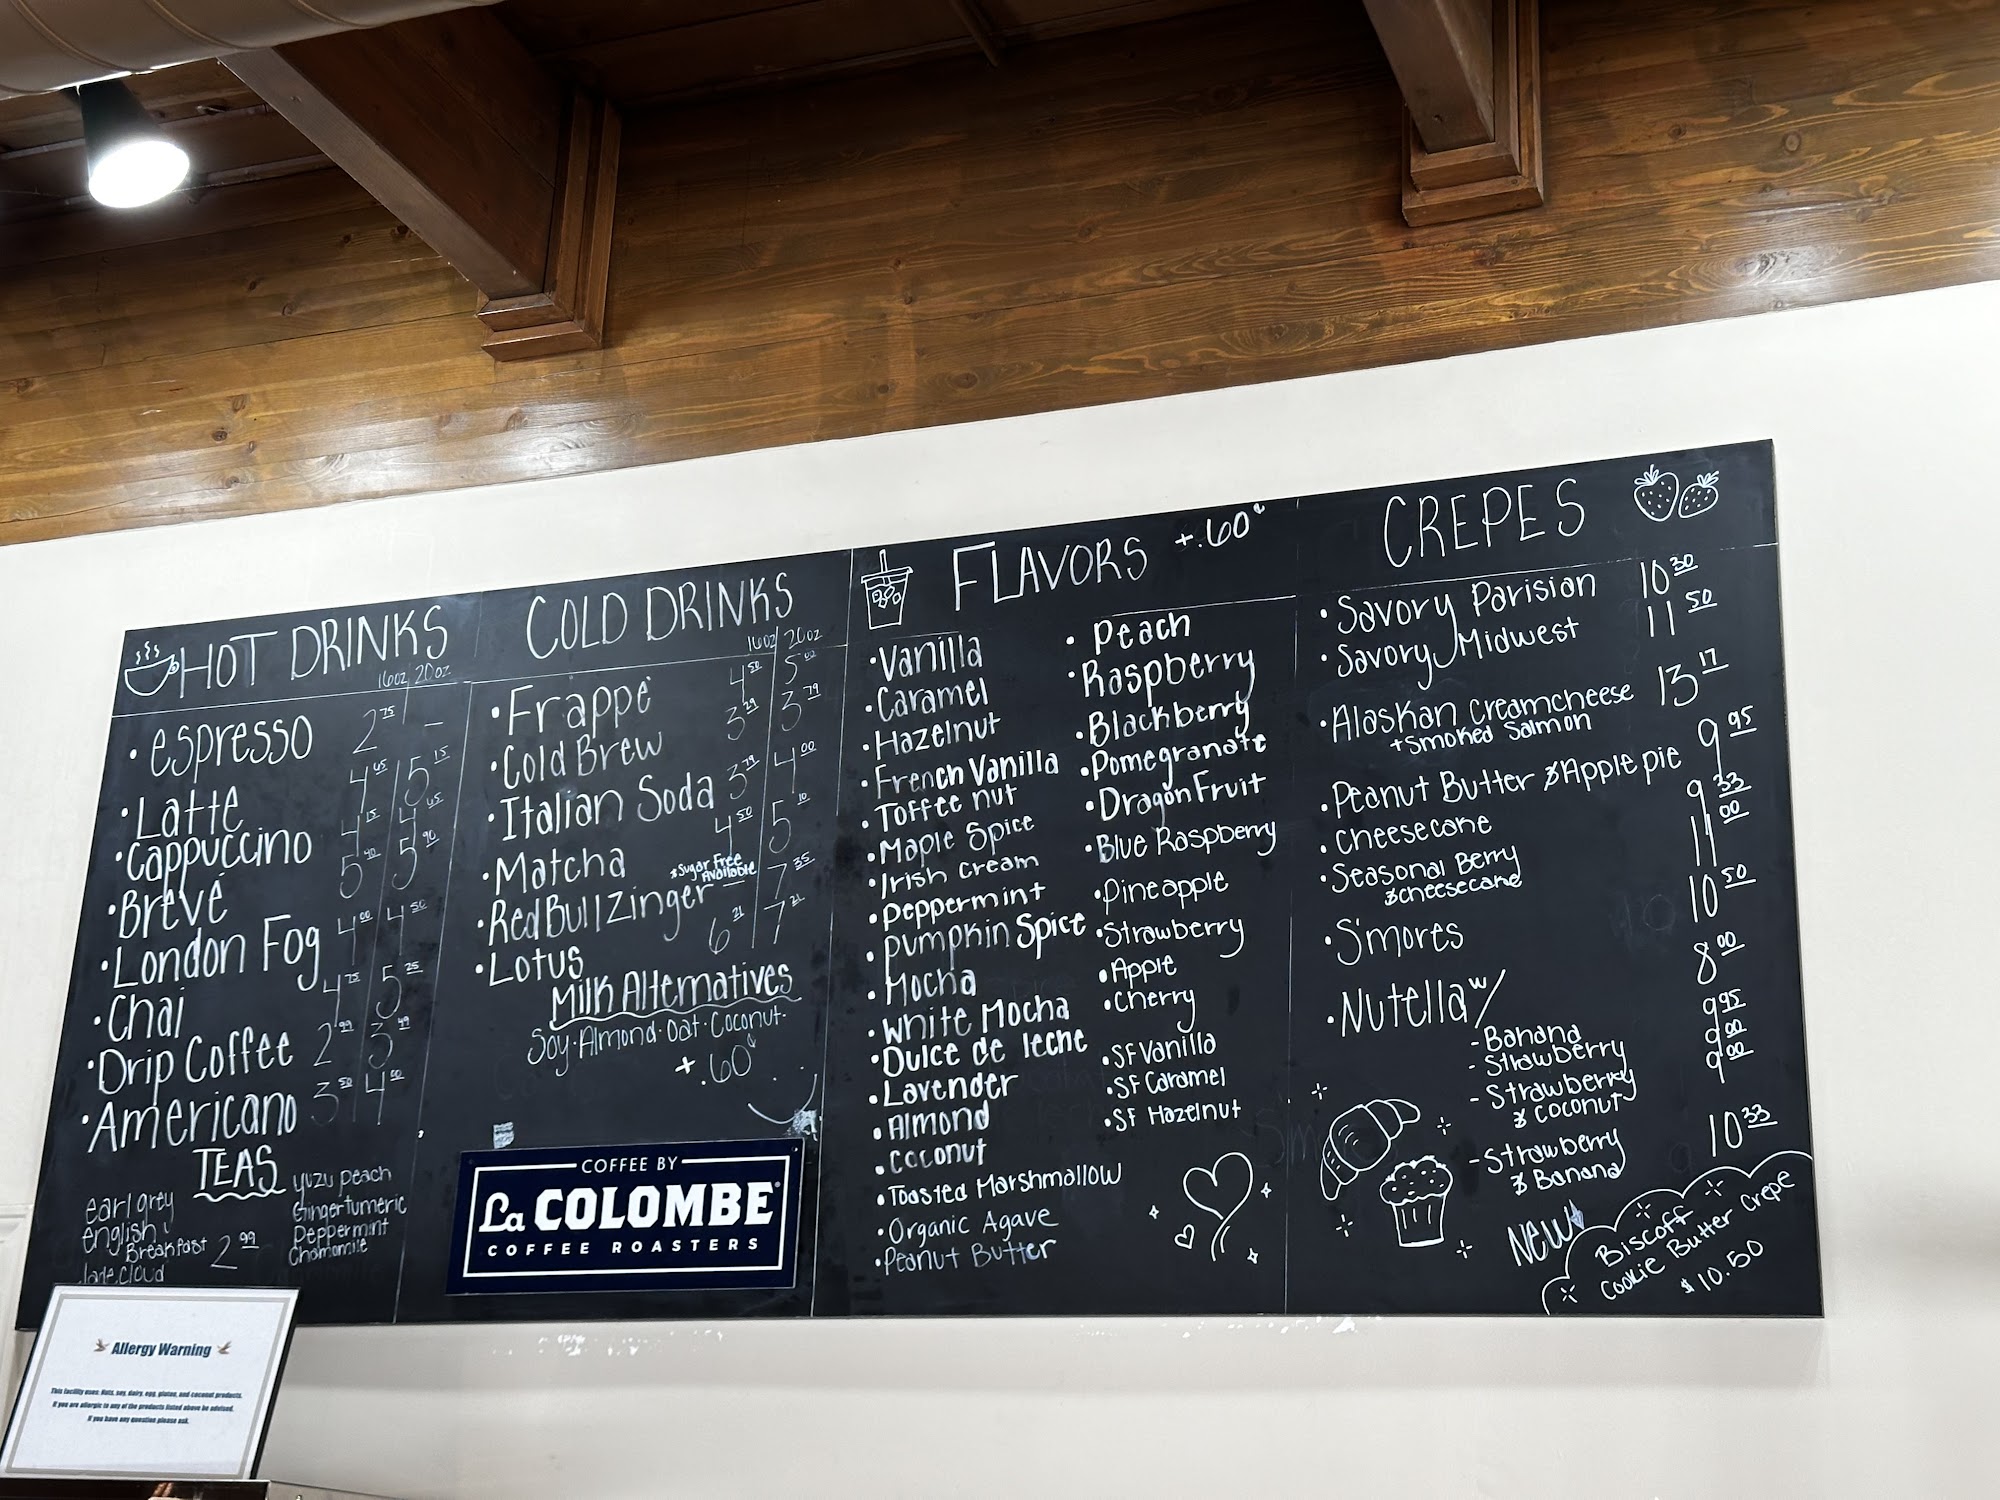 HOT DRINKS
16oz 20oz
• espresso 2.75 —
• Latte 4.65 5.15
• Cappuccino 4.15 4.65
• Brevé 5.40 5.90
• London Fog 4.00 4.50
• Chai 4.75 5.25
• Drip Coffee 2.99 3.49
• Americano 3.50 4.00
TEAS
earl grey
english
Breakfast
Jade cloud
2.99
yuzu peach
Ginger Tumeric
Peppermint
Chamomile
COLD DRINKS
16oz 20oz
• Frappé 4.50 5.02
• Cold Brew 3.29 3.79
• Italian Soda 3.79 4.00
• Matcha 4.50 5.10
• Red Bull Zinger *Sugar Free Available — 7.35
• Lotus 6.21 7.21
Milk Alternatives
Soy • Almond • Oat • Coconut •
+ .60¢
COFFEE BY
La COLOMBE®
COFFEE ROASTERS
FLAVORS +.60¢
• Vanilla
• Caramel
• Hazelnut
• French Vanilla
• Toffee nut
• Maple Spice
• Irish Cream
• Peppermint
• Pumpkin Spice
• Mocha
• White Mocha
• Dulce de leche
• Lavender
• Almond
• Coconut
• Toasted Marshmallow
• Organic Agave
• Peanut Butter
• Peach
• Raspberry
• Blackberry
• Pomegranate
• Dragon Fruit
• Blue Raspberry
• Pineapple
• Strawberry
• Apple
• Cherry
• SF Vanilla
• SF Caramel
• SF Hazelnut
CREPES
• Savory Parisian 10.30
• Savory Midwest 11.50
• Alaskan Creamcheese 13.17
+ Smoked Salmon
• Peanut Butter & Apple pie 9.95
• Cheesecake 9.33
• Seasonal Berry 11.00
& cheesecake
• S'mores 10.50
• Nutella w/ 8.00
- Banana 9.95
- Strawberry 9.00
- Strawberry 9.00
& coconut
- Strawberry 10.33
& Banana
NEW
Biscoff
Cookie Butter Crepe
$10.50
Allergy Warning
This facility uses: Nuts, soy, dairy, egg, gluten, and coconut products.
If you are allergic to any of the products listed above be advised.
If you have any question please ask.